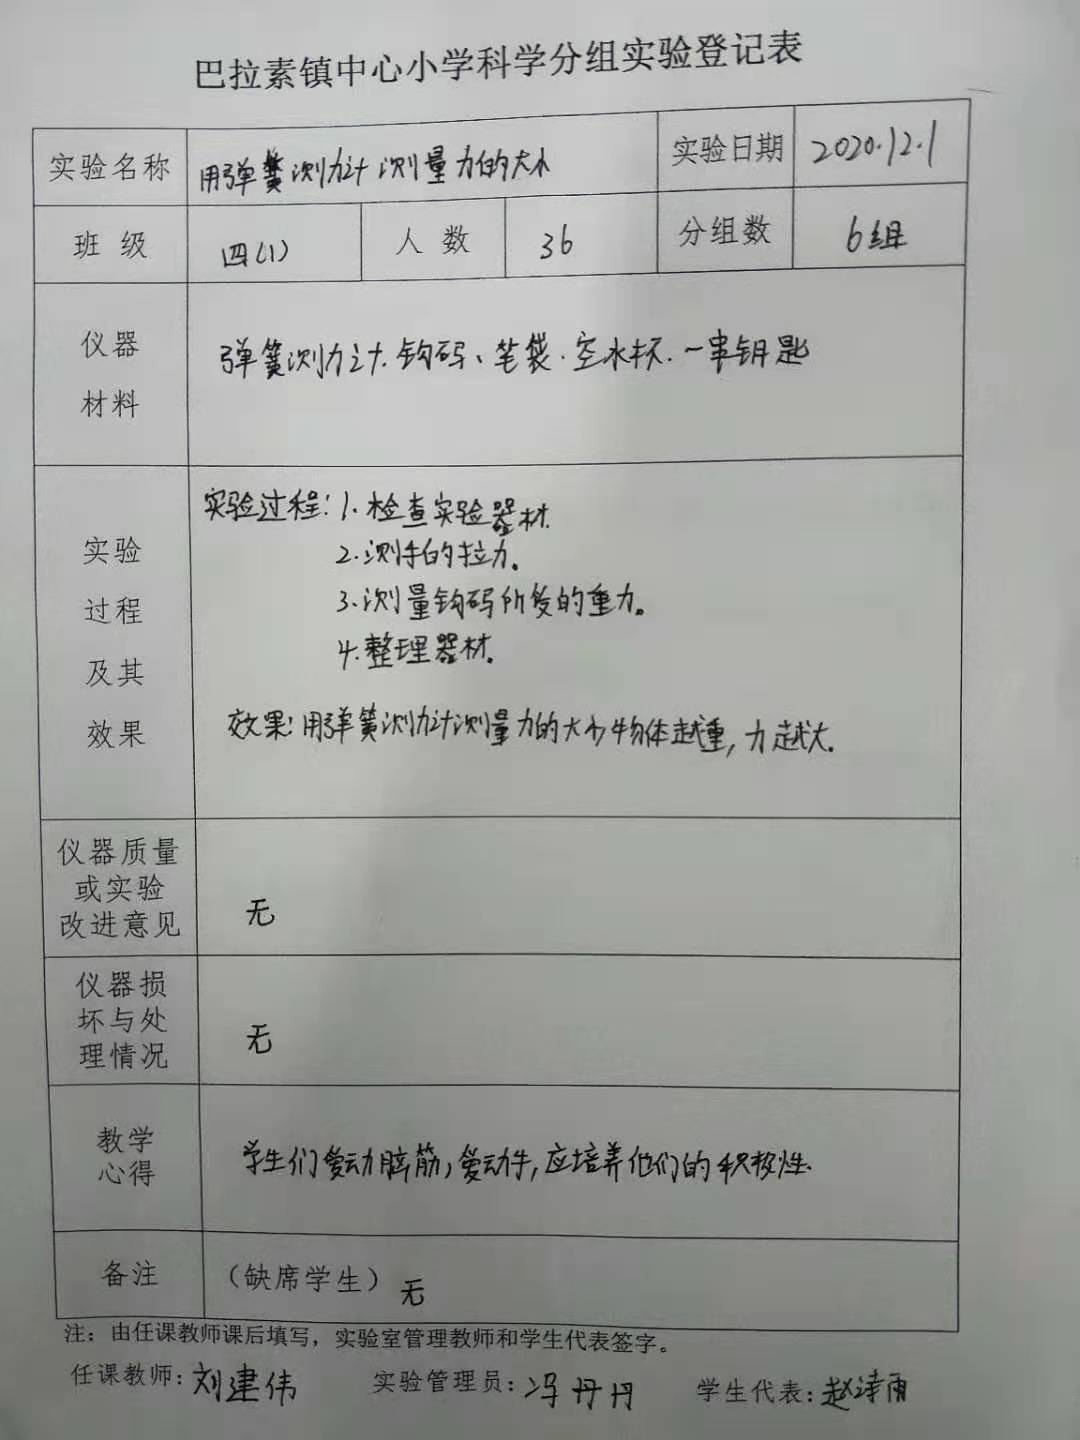 巴拉素镇中心小学科学分组实验登记表
实验名称 用弹簧测力计测量力的大小 实验日期 2020.12.1
班级 四(1) 人数 36 分组数 6组
仪器
材料
弹簧测力计.钩码、笔袋.空水杯.一串钥匙
实验
过程
及其
效果
实验过程:1.检查实验器材.
2.测手的拉力。
3.测量钩码所受的重力。
4.整理器材.
效果:用弹簧测力计测量力的大小物体越重,力越大.
仪器质量
或实验
改进意见
无
仪器损
坏与处
理情况
无
教学
心得
学生们爱动脑筋,爱动手,应培养他们的积极性.
备注 (缺席学生) 无
注：由任课教师课后填写，实验室管理教师和学生代表签字。
任课教师:刘建伟 实验管理员:冯丹丹 学生代表:赵诗雨